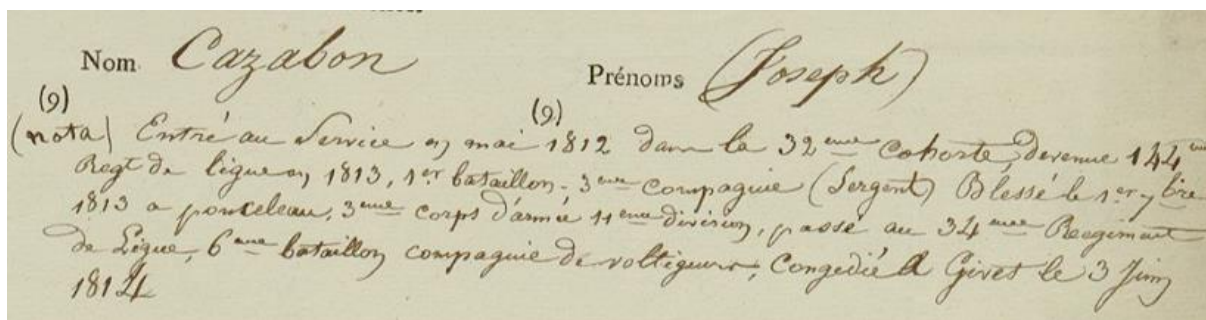 Nom Cazabon Prénoms (Joseph)
(9) (9)
(nota) Entré au Service en mai 1812 dans la 32eme Cohorte, devenue 144me
Regt de ligne en 1813, 1er bataillon - 3eme compagnie (Sergent) Blessé le 1er 7bre
1813 a ponceleau, 3eme Corps d'armée 11eme division, passé au 34eme Reegiment
de Ligne, 6eme bataillon compagnie de voltigeurs, Congedié a Givet le 3 Juin
1814